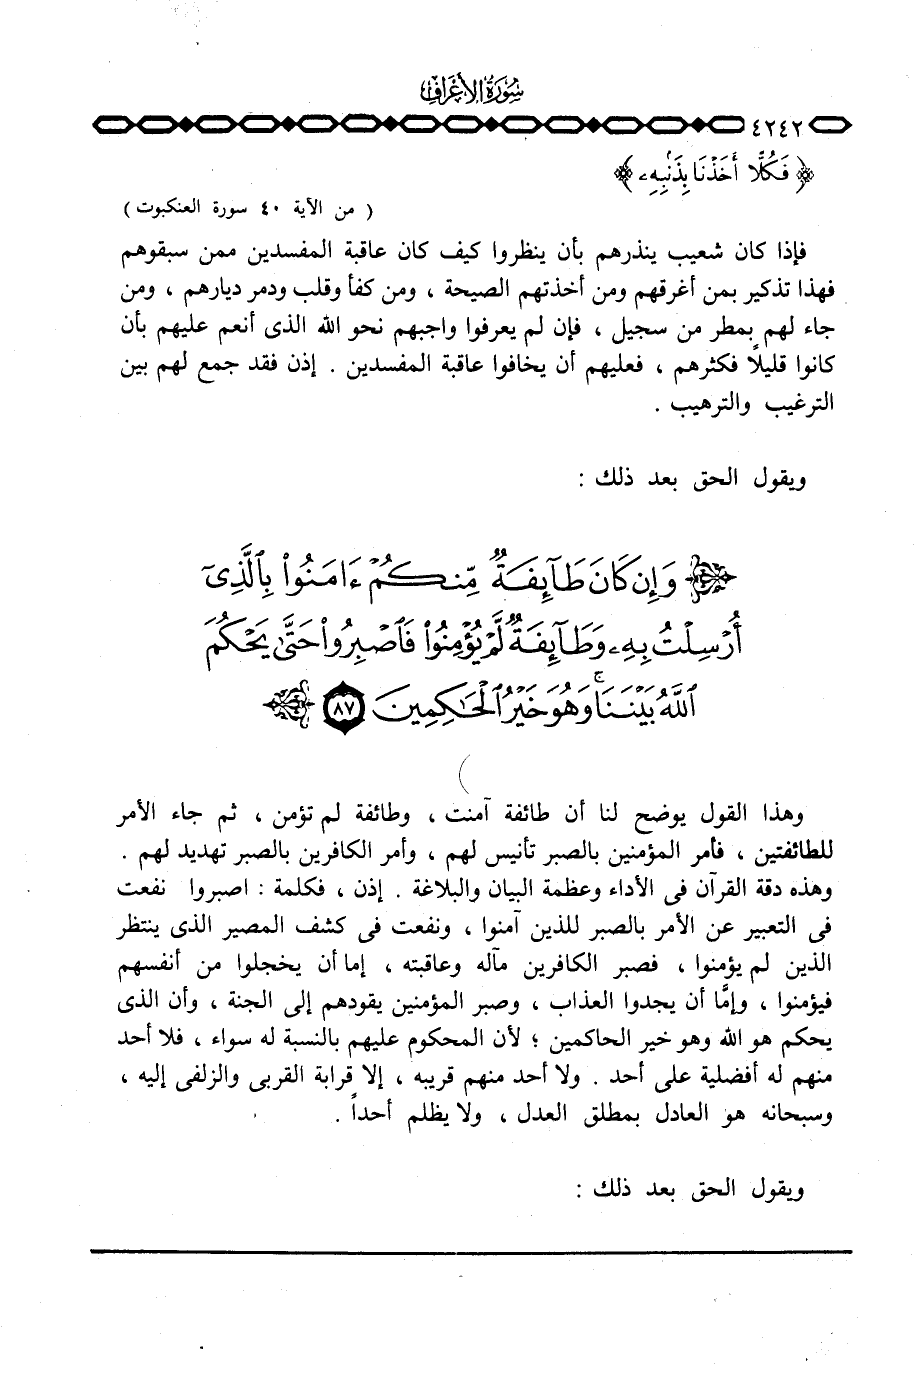 سُورَةُ الأَعْرَافِ
٤٢٤٢
﴿ فَكُلًّا أَخَذْنَا بِذَنۢبِهِۦ ﴾
( من الآية ٤٠ سورة العنكبوت )
فإذا كان شعيب ينذرهم بأن ينظروا كيف كان عاقبة المفسدين ممن سبقوهم
فهذا تذكير بمن أغرقهم ومن أخذتهم الصيحة ، ومن كفأ وقلب ودمر ديارهم ، ومن
جاء لهم بمطر من سجيل ، فإن لم يعرفوا واجبهم نحو الله الذى أنعم عليهم بأن
كانوا قليلاً فكثرهم ، فعليهم أن يخافوا عاقبة المفسدين . إذن فقد جمع لهم بين
الترغيب والترهيب .
ويقول الحق بعد ذلك :
وَإِن كَانَ طَآئِفَةٌ مِّنكُمْ ءَامَنُوا۟ بِٱلَّذِىٓ
أُرْسِلْتُ بِهِۦ وَطَآئِفَةٌ لَّمْ يُؤْمِنُوا۟ فَٱصْبِرُوا۟ حَتَّىٰ يَحْكُمَ
ٱللَّهُ بَيْنَنَا ۚ وَهُوَ خَيْرُ ٱلْحَٰكِمِينَ ٨٧
وهذا القول يوضح لنا أن طائفة آمنت ، وطائفة لم تؤمن ، ثم جاء الأمر
للطائفتين ، فأمر المؤمنين بالصبر تأنيس لهم ، وأمر الكافرين بالصبر تهديد لهم .
وهذه دقة القرآن فى الأداء وعظمة البيان والبلاغة . إذن ، فكلمة : اصبروا نفعت
فى التعبير عن الأمر بالصبر للذين آمنوا ، ونفعت فى كشف المصير الذى ينتظر
الذين لم يؤمنوا ، فصبر الكافرين مآله وعاقبته ، إما أن يخجلوا من أنفسهم
فيؤمنوا ، وإمَّا أن يجدوا العذاب ، وصبر المؤمنين يقودهم إلى الجنة ، وأن الذى
يحكم هو الله وهو خير الحاكمين ؛ لأن المحكوم عليهم بالنسبة له سواء ، فلا أحد
منهم له أفضلية على أحد . ولا أحد منهم قريبه ، إلا قرابة القربى والزلفى إليه ،
وسبحانه هو العادل بمطلق العدل ، ولا يظلم أحداً .
ويقول الحق بعد ذلك :